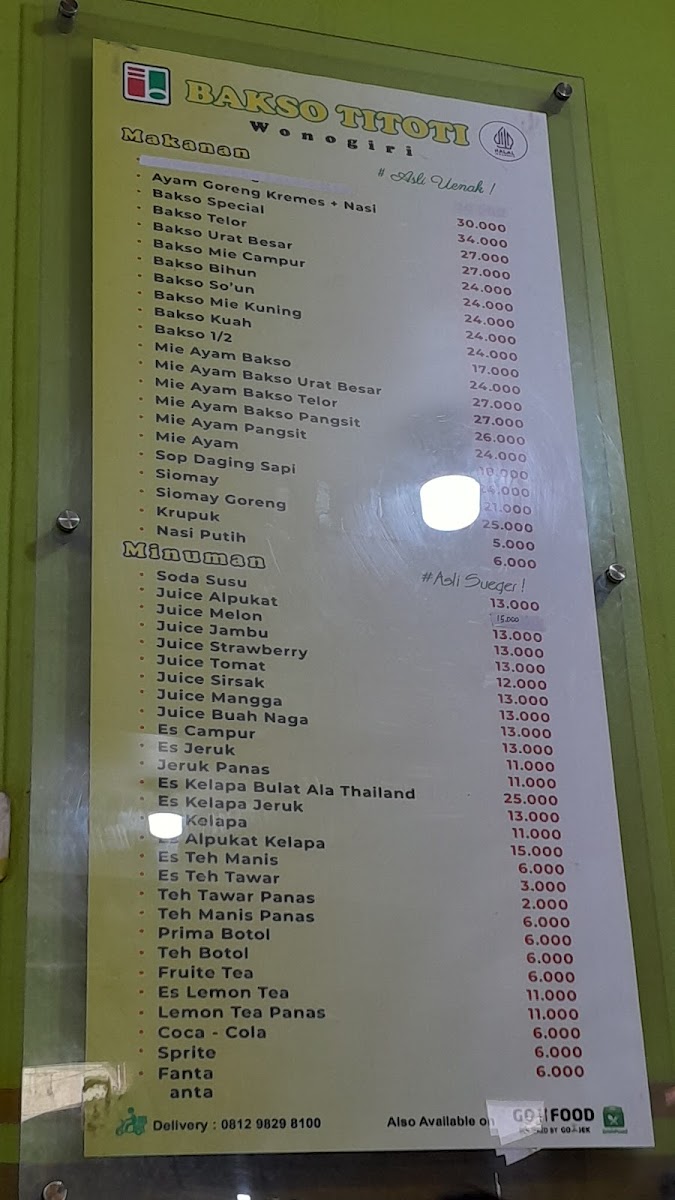 BAKSO TITOTI
Wonogiri
HALAL
Makanan
# Asli Uenak !
Ayam Goreng Kremes + Nasi 30.000
Bakso Special 34.000
Bakso Telor 27.000
Bakso Urat Besar 27.000
Bakso Mie Campur 24.000
Bakso Bihun 24.000
Bakso So'un 24.000
Bakso Mie Kuning 24.000
Bakso Kuah 24.000
Bakso 1/2 17.000
Mie Ayam Bakso 24.000
Mie Ayam Bakso Urat Besar 27.000
Mie Ayam Bakso Telor 27.000
Mie Ayam Bakso Pangsit 26.000
Mie Ayam Pangsit 24.000
Mie Ayam 18.000
Sop Daging Sapi
Siomay 21.000
Siomay Goreng 25.000
Krupuk 5.000
Nasi Putih 6.000
Minuman
#Asli Sueger !
Soda Susu 13.000
Juice Alpukat 15.000
Juice Melon 13.000
Juice Jambu 13.000
Juice Strawberry 13.000
Juice Tomat 12.000
Juice Sirsak 13.000
Juice Mangga 13.000
Juice Buah Naga 13.000
Es Campur 13.000
Es Jeruk 11.000
Jeruk Panas 11.000
Es Kelapa Bulat Ala Thailand 25.000
Es Kelapa Jeruk 13.000
Kelapa 11.000
Es Alpukat Kelapa 15.000
Es Teh Manis 6.000
Es Teh Tawar 3.000
Teh Tawar Panas 2.000
Teh Manis Panas 6.000
Prima Botol 6.000
Teh Botol 6.000
Fruite Tea 6.000
Es Lemon Tea 11.000
Lemon Tea Panas 11.000
Coca - Cola 6.000
Sprite 6.000
Fanta 6.000
anta
Delivery : 0812 9829 8100 Also Available on GO FOOD
BY GOJEK